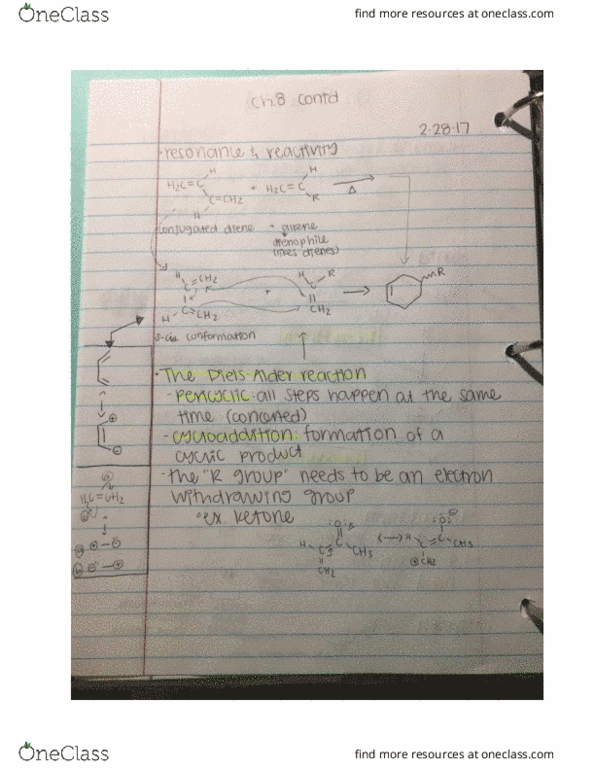 OneClass
find more resources at oneclass.com
Ch.8 contd
2-28-17
·resonance & reactivity
H
H
H₂C=C
+ H₂C=C
C=CH₂
R
Δ
H
conjugated diene + alkene
dienophile
(likes dienes)
H
C=CH₂
H
R
C
R
C=CH₂
H
+
CH₂
s-cis conformation
·The Diels-Alder reaction
-pericyclic: all steps happen at the same
time (concerted)
-cycloaddition: formation of a
cyclic product
·the "R group" needs to be an electron
withdrawing group
°ex. ketone
H₂C=CH₂
H
C
CH₃
CH₂
H
C=C
CH₃
CH₂
OneClass
find more resources at oneclass.com